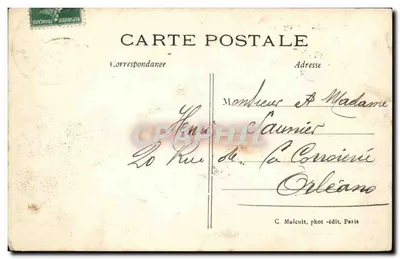 CARTE POSTALE
Correspondance
Adresse
Monsieur & Madame
Henri Saunier
20 Rue de La Corroierie
Orléans
C. Malcuit, phot-édit, Paris